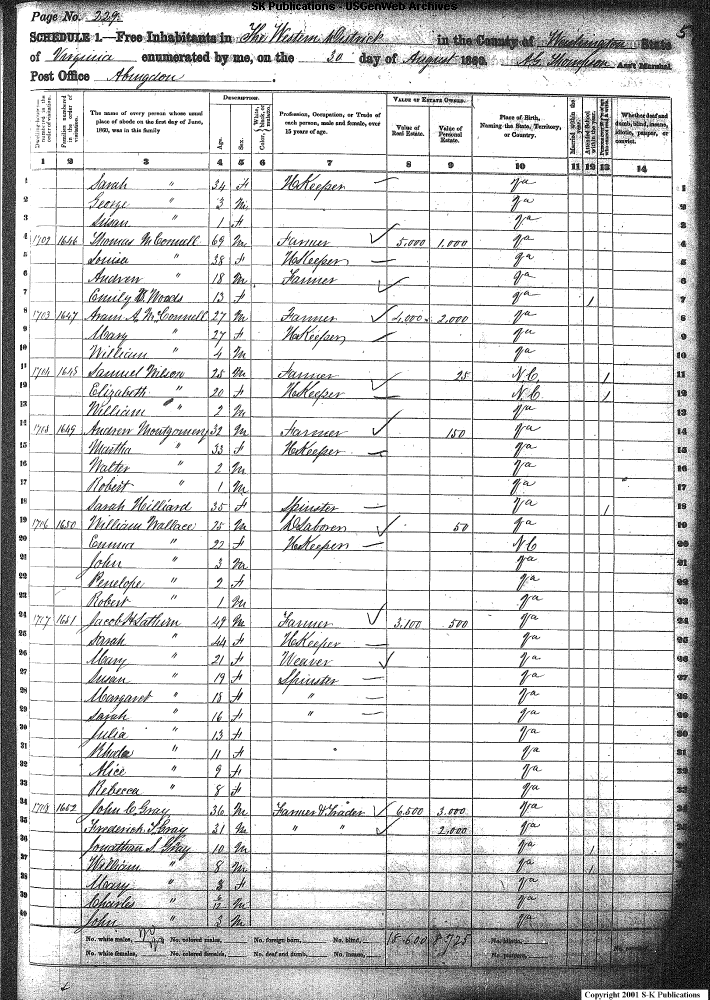 SK Publications - USGenWeb Archives
Page No. 229
SCHEDULE 1.—Free Inhabitants in The Western District in the County of Washington State
of Virginia enumerated by me, on the 30 day of August 1860. Ass't Marshal
Post Office Abingdon
5
DESCRIPTION. VALUE OF ESTATE OWNED.
The name of every person whose usual place of abode on the first day of June, 1860, was in this family
Age. Sex. Color
Profession, Occupation, or Trade of each person, male and female, over 15 years of age.
Value of Real Estate. Value of Personal Estate.
Place of Birth, Naming the State, Territory, or Country.
Whether deaf and dumb, blind, insane, idiotic, pauper, or convict.
1 2 3 4 5 6 7 8 9 10 11 12 13 14
1 Sarah " 34 f H Keeper Va 1
2 George " 3 m Va 2
3 Susan " 1 f Va 3
4 1702 1646 Thomas McConnell 69 m Farmer ✓ 5,000 1,000 Va 4
5 Louisa " 38 f H Keeper Va 5
6 Andrew " 18 m Farmer ✓ Va 6
7 Emily Woods 13 f Va 1 7
8 1703 1647 Aram A. McConnell 27 m Farmer ✓ 4,000 2,000 Va 8
9 Mary " 27 f H Keeper Va 9
10 William " 4 m Va 10
11 1704 1648 Samuel Wilson 25 m Farmer ✓ 25 N.C. 1 11
12 Elizabeth " 20 f H Keeper N.C. 1 12
13 William " 2 m Va 13
14 1705 1649 Andrew Montgomery 32 m Farmer ✓ 150 Va 14
15 Martha " 33 f H Keeper Va 15
16 Walter " 2 m Va 16
17 Robert " 1 m Va 17
18 Sarah Hilliard 35 f Spinster Va 1 18
19 1706 1650 William Wallace 25 m D Laborer ✓ 50 Va 19
20 Emma " 22 f H Keeper N.C 20
21 John " 3 m Va 21
22 Penelope " 2 f Va 22
23 Robert " 1 m Va 23
24 1707 1651 Jacob H Lathern 49 m Farmer ✓ 3,100 500 Va 24
25 Sarah " 44 f H Keeper Va 25
26 Mary " 21 f Weaver ✓ Va 26
27 Susan " 19 f Spinster Va 27
28 Margaret " 18 f " Va 28
29 Sarah " 16 f " Va 29
30 Julia " 13 f Va 30
31 Rhoda " 11 f Va 31
32 Alice " 9 f Va 32
33 Rebecca " 8 f Va 33
34 1708 1652 John C. Gray 36 m Farmer & Trader ✓ 6,500 3,000 Va 34
35 Frederick T. Gray 21 m " " ✓ 2,000 Va 35
36 Jonathan S. Gray 10 m Va 1 36
37 William " 8 m Va 1 37
38 Mary " f Va 38
39 Charles " m Va 39
40 John " 3 m Va 40
No. white males, No. colored males, No. foreign born, No. blind, 18,600 8,725 No. idiotic,
No. white females, No. colored females, No. deaf and dumb, No. insane, No. paupers,
Copyright 2001 S-K Publications